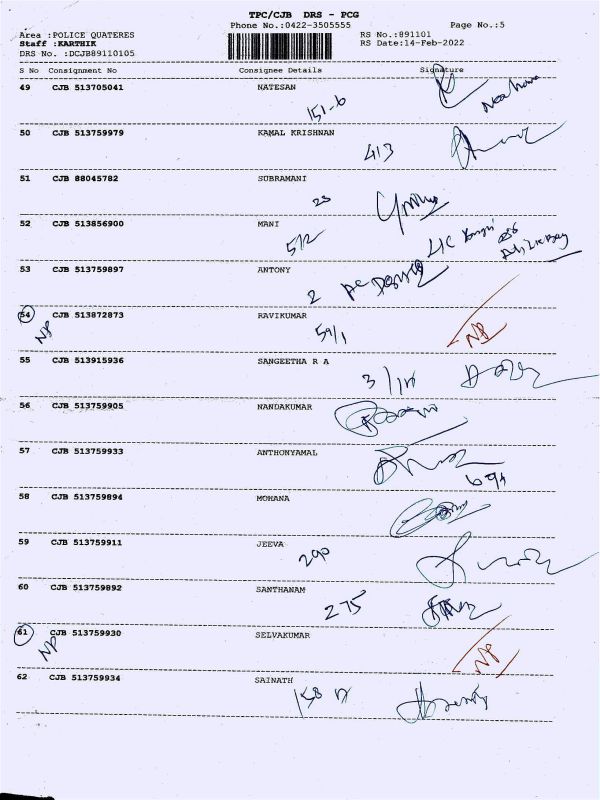 TPC/CJB DRS - PCG
Phone No.:0422-3505555 Page No.:5
Area :POLICE QUATERES RS No.:891101
Staff :KARTHIK RS Date:14-Feb-2022
DRS No. :DCJB89110105
S No Consignment No Consignee Details Signature
49 CJB 513705041 NATESAN
151-6
50 CJB 513759979 KAMAL KRISHNAN
413
51 CJB 88045782 SUBRAMANI
23
52 CJB 513856900 MANI
5/2 LIC
53 CJB 513759897 ANTONY
2
54 CJB 513872873 RAVIKUMAR
NP 59/1 NP
55 CJB 513915936 SANGEETHA R A
3
56 CJB 513759905 NANDAKUMAR
57 CJB 513759933 ANTHONYAMAL
58 CJB 513759894 MOHANA
59 CJB 513759911 JEEVA
290
60 CJB 513759892 SANTHANAM
275
61 CJB 513759930 SELVAKUMAR
NP NP
62 CJB 513759934 SAINATH